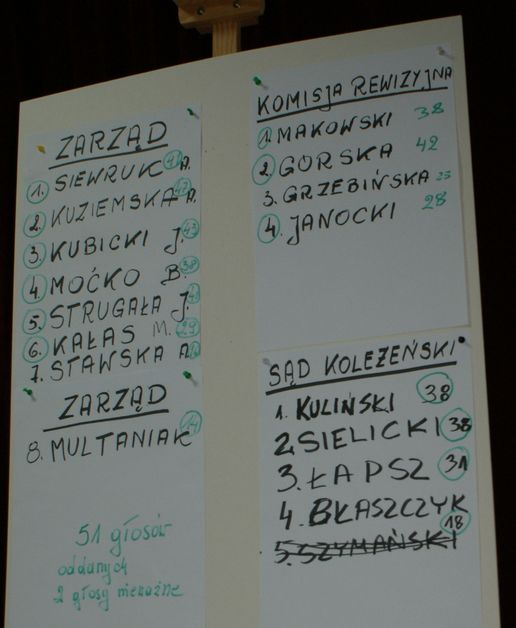 ZARZĄD
1. SIEWRUK A.
2. KUZIEMSKA A.
3. KUBICKI J. 43
4. MOĆKO B. 38
5. STRUGAŁA J.
6. KAŁAS M. 29
7. STAWSKA A.
ZARZĄD
8. MULTANIAK 14
51 głosów
oddanych
2 głosy nieważne
KOMISJA REWIZYJNA
1. MAKOWSKI 38
2. GÓRSKA 42
3. GRZEBIŃSKA 23
4. JANOCKI 28
SĄD KOLEŻEŃSKI
1. KULIŃSKI 38
2. SIELICKI 38
3. ŁAPSZ 31
4. BŁASZCZYK 18
5. SZYMAŃSKI